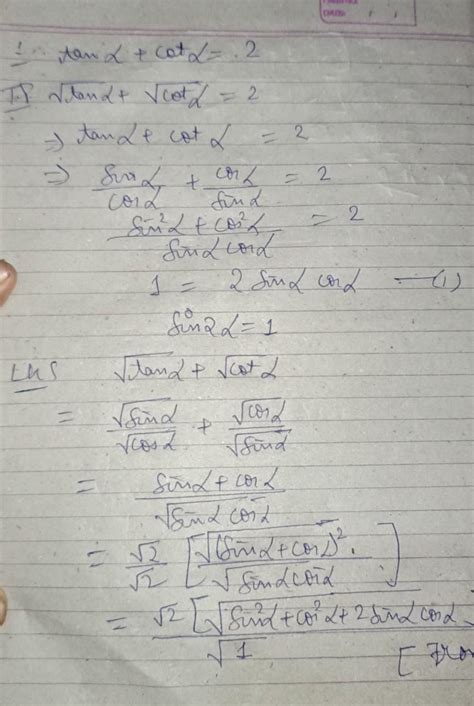 1. tanα + cotα = 2
T.P √tanα + √cotα = 2
⇒ tanα + cotα = 2
⇒ sinα/cosα + cosα/sinα = 2
(sin²α + cos²α)/(sinα cosα) = 2
1 = 2 sinα cosα —(1)
sin2α = 1
LHS √tanα + √cotα
= √sinα/√cosα + √cosα/√sinα
= (sinα + cosα)/√(sinα cosα)
= √2/√2 [√(sinα + cosα)²/√(sinα cosα)]
= √2 [√(sin²α + cos²α + 2 sinα cosα)]/√1
[From